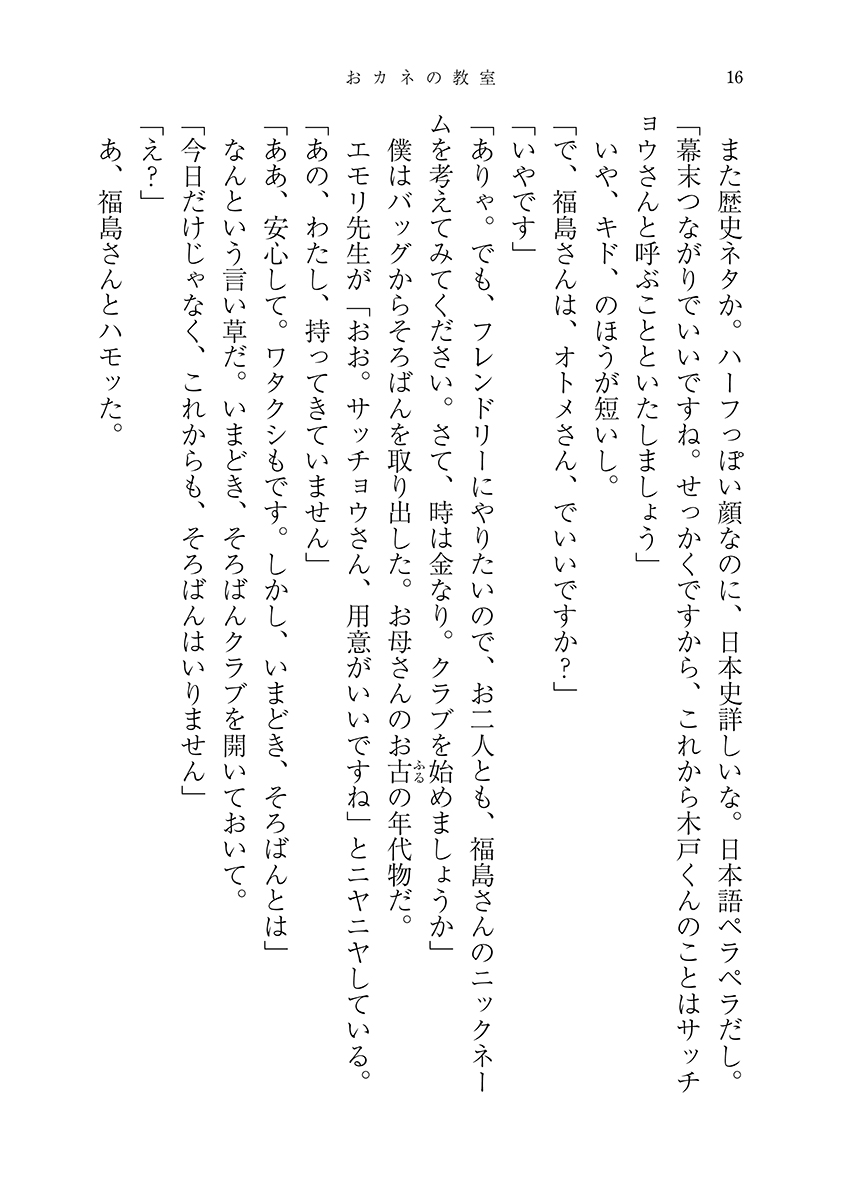 おカネの教室
16
また歴史ネタか。ハーフっぽい顔なのに、日本史詳しいな。日本語ペラペラだし。
「幕末つながりでいいですね。せっかくですから、これから木戸くんのことはサッチ
ョウさんと呼ぶことといたしましょう」
いや、キド、のほうが短いし。
「で、福島さんは、オトメさん、でいいですか?」
「いやです」
「ありゃ。でも、フレンドリーにやりたいので、お二人とも、福島さんのニックネー
ムを考えてみてください。さて、時は金なり。クラブを始めましょうか」
僕はバッグからそろばんを取り出した。お母さんのお古の年代物だ。
ふる
エモリ先生が「おお。サッチョウさん、用意がいいですね」とニヤニヤしている。
「あの、わたし、持ってきていません」
「ああ、安心して。ワタクシもです。しかし、いまどき、そろばんとは」
なんという言い草だ。いまどき、そろばんクラブを開いておいて。
「今日だけじゃなく、これからも、そろばんはいりません」
「え?」
あ、福島さんとハモッた。